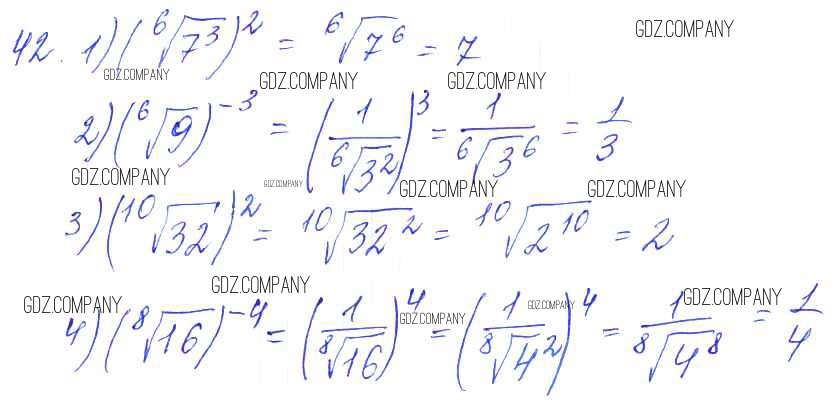 42. 1) (⁶√7³)² = ⁶√7⁶ = 7
GDZ.COMPANY
GDZ.COMPANY GDZ.COMPANY GDZ.COMPANY
2) (⁶√9)⁻³ = (1/⁶√3²)³ = 1/⁶√3⁶ = 1/3
GDZ.COMPANY GDZ.COMPANY GDZ.COMPANY GDZ.COMPANY
3) (¹⁰√32)² = ¹⁰√32² = ¹⁰√2¹⁰ = 2
GDZ.COMPANY
GDZ.COMPANY GDZ.COMPANY GDZ.COMPANY GDZ.COMPANY
4) (⁸√16)⁻⁴ = (1/⁸√16)⁴ = (1/⁸√4²)⁴ = 1/⁸√4⁸ = 1/4